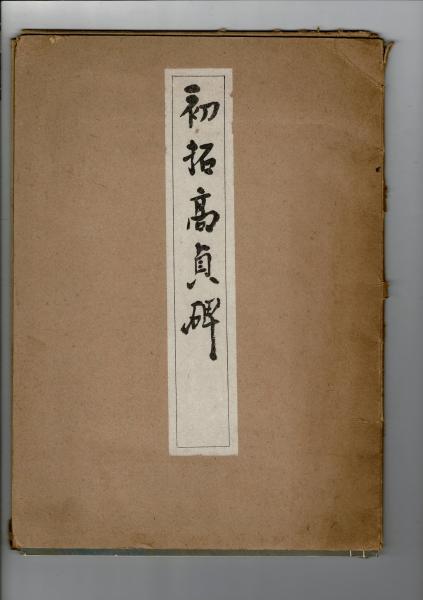 初拓高貞碑